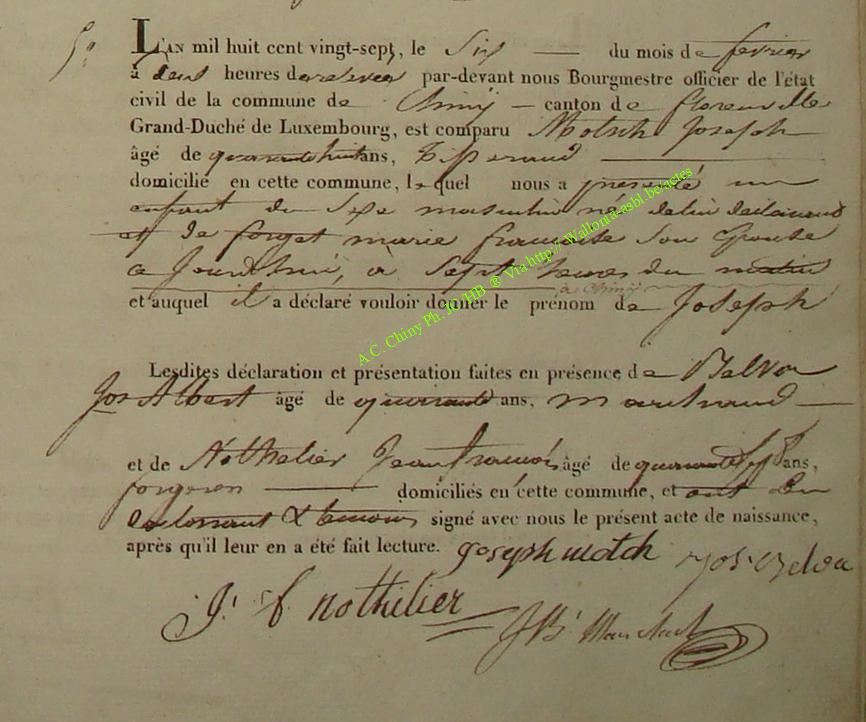 5°
L'AN mil huit cent vingt-sept, le Six du mois de fevrier
à heures par-devant nous Bourgmestre officier de l'état
civil de la commune de Chiny canton de florenville
Grand-Duché de Luxembourg, est comparu Motsch Joseph
âgé de quarante huit ans, Tisserand
domicilié en cette commune, lequel nous a présenté un
enfant du Sexe masculin né de lui declarant
et de forget marie françoise Son Epouse
a Sept heures du matin
à Chiny
et auquel il a déclaré vouloir donner le prénom de Joseph
Lesdites déclaration et présentation faites en présence de
Jos Albert âgé de quarante ans,
et de Nothelier Jean françois âgé de quarante ans,
forgeron domiciliés en cette commune, et ont
declarant & temoins signé avec nous le présent acte de naissance,
après qu'il leur en a été fait lecture. joseph motch
J. f nothelier
A.C. Chiny Ph. JC/HB ® Via http://Wallonia-asbl.be/actes